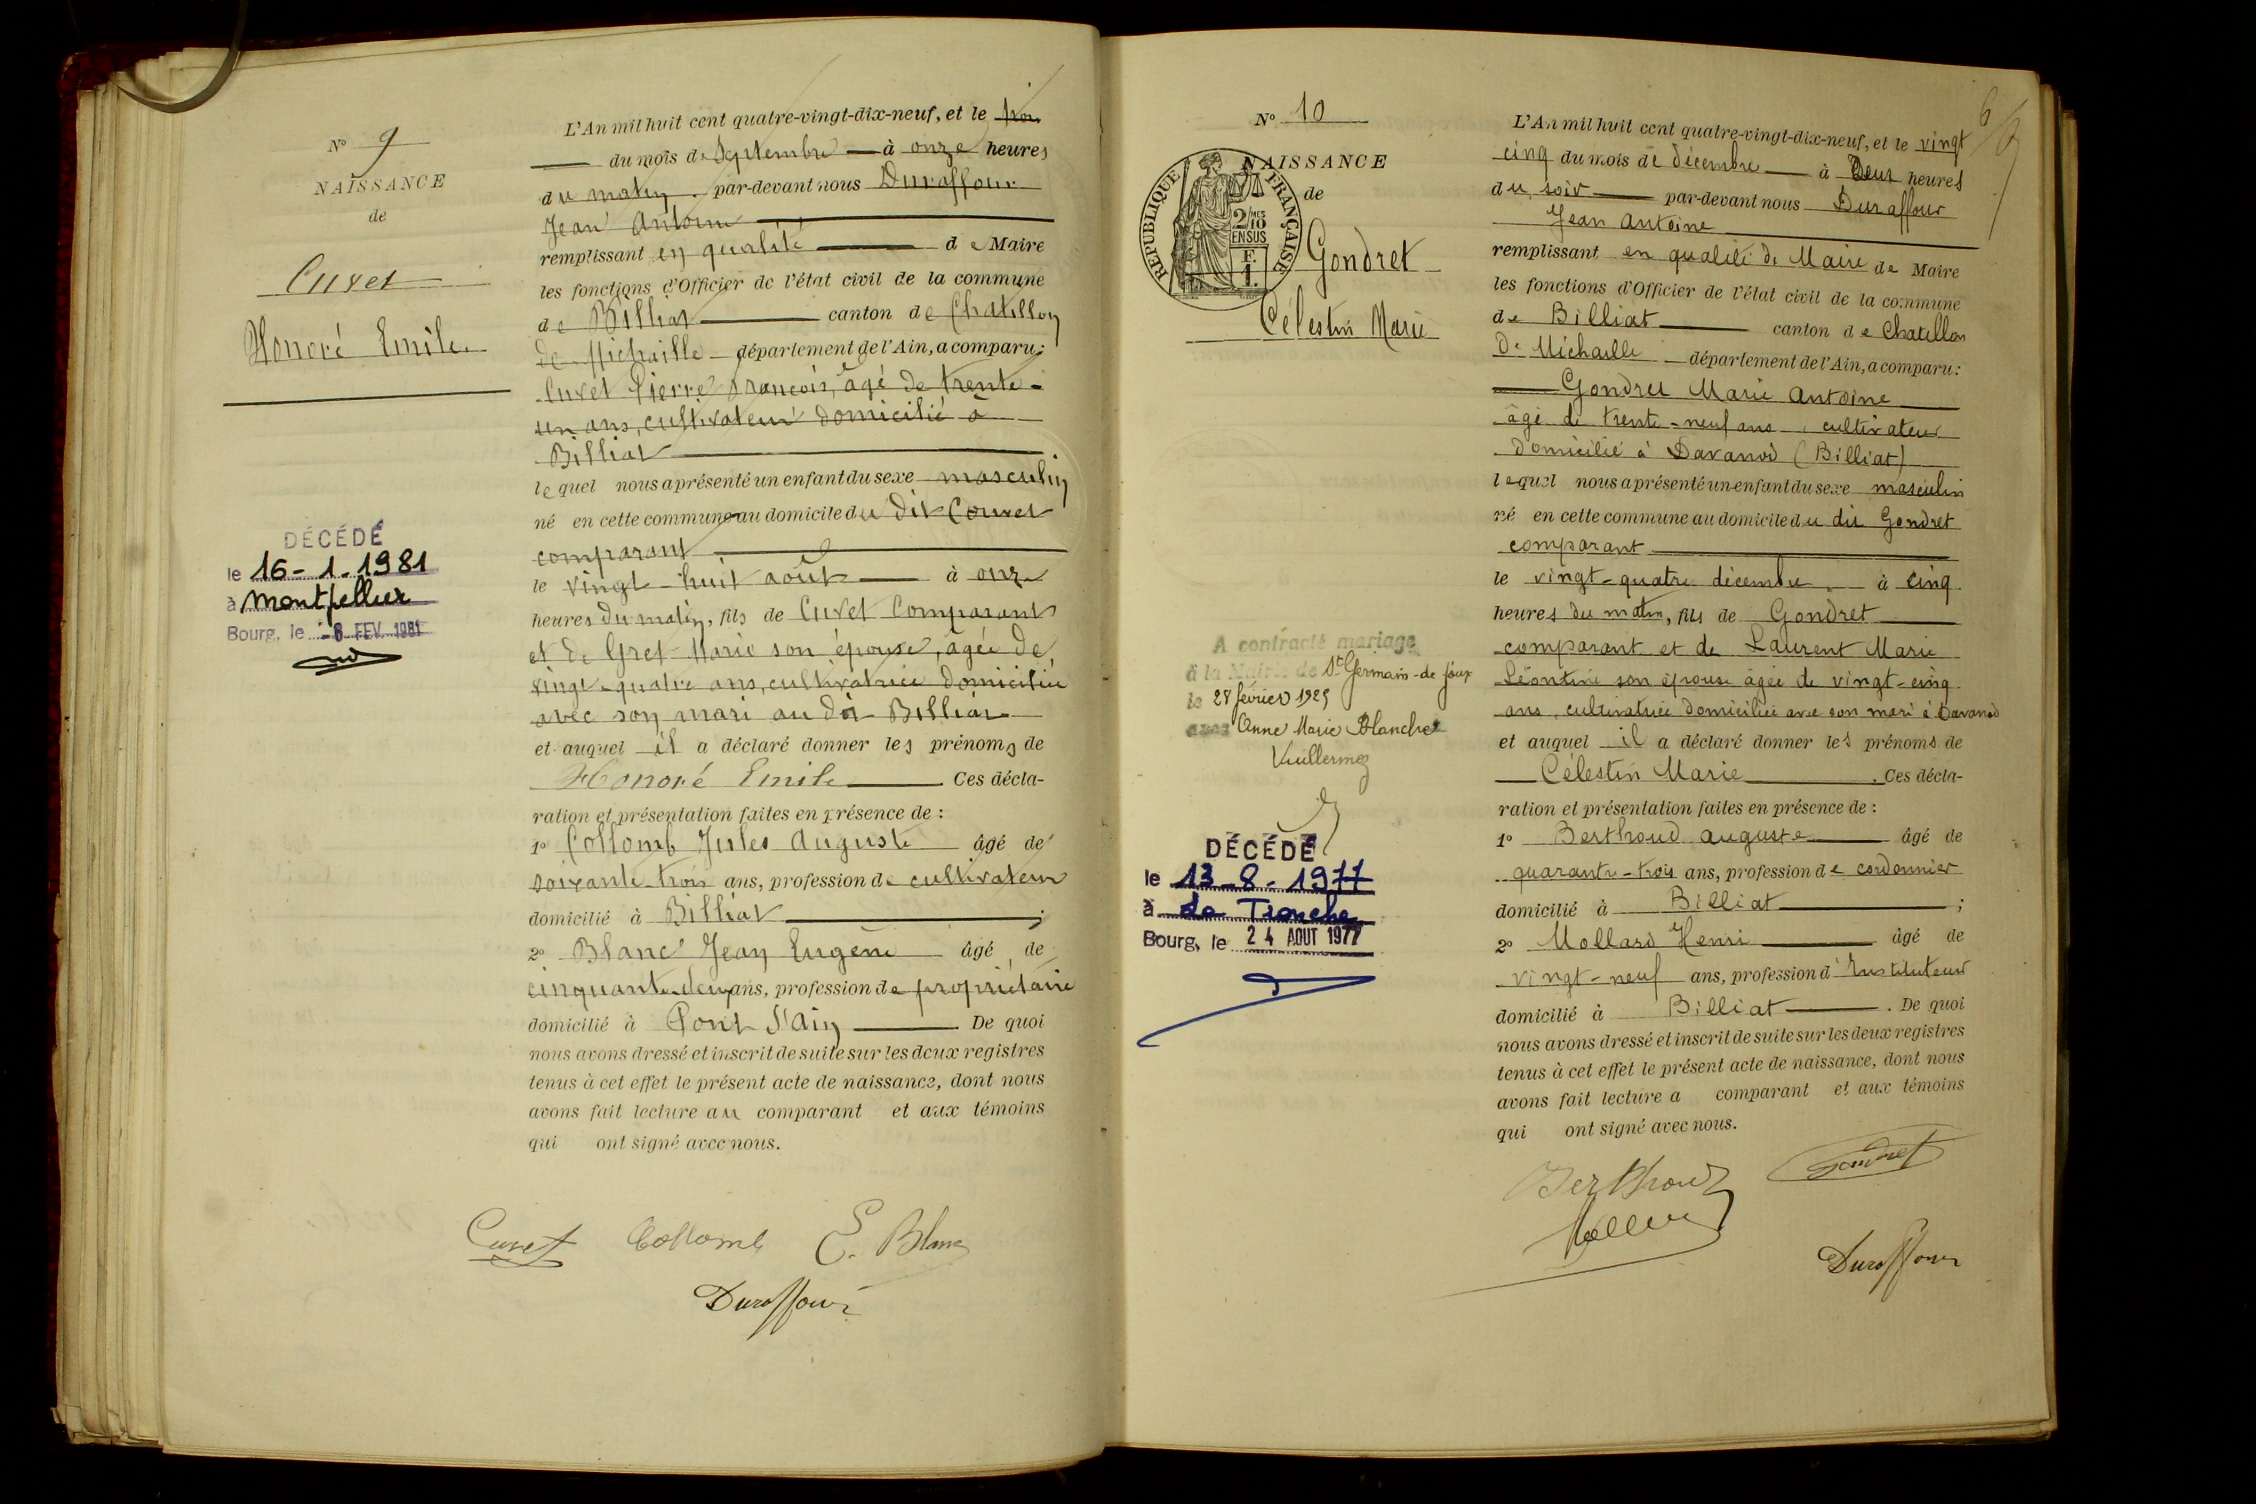 N° 9
NAISSANCE
de
Cuvet
Honoré Emile
DÉCÉDÉ
le 16-1-1981
à Montpellier
Bourg, le -6 FEV. 1981
L'An mil huit cent quatre-vingt-dix-neuf, et le trois
du mois de Septembre à onze heures
du matin. par-devant nous Duraffour
Jean Antoine
remplissant en qualité de Maire
les fonctions d'Officier de l'état civil de la commune
de Billiat canton de Chatillon
de Michaille département de l'Ain, a comparu :
Cuvet Pierre François, âgé de trente-
un ans, cultivateur domicilié à
Billiat
lequel nous a présenté un enfant du sexe masculin
né en cette commune au domicile du dit Couvet
comparant
le vingt-huit août à onze
heures du matin, fils de Cuvet Comparant
et de Gret Marie son épouse, âgée de
vingt-quatre ans, cultivatrice domiciliée
avec son mari au dit Billiat
et auquel il a déclaré donner les prénoms de
Honoré Emile Ces décla-
ration et présentation faites en présence de :
1° Collomb Jules Auguste âgé de
soixante-trois ans, profession de cultivateur
domicilié à Billiat ;
2° Blanc Jean Eugène âgé de
cinquante-deux ans, profession de propriétaire
domicilié à Pont d'Ain De quoi
nous avons dressé et inscrit de suite sur les deux registres
tenus à cet effet le présent acte de naissance, dont nous
avons fait lecture au comparant et aux témoins
qui ont signé avec nous.
Cuvet Collomb E. Blanc
Duraffour
N° 10
NAISSANCE
de
RÉPUBLIQUE FRANÇAISE
2/MES
10
EN SUS
F.
1.
Gondret
Célestin Marie
A contracté mariage
à la Mairie de St Germain-de-Joux
le 28 février 1925
avec Anne Marie Blanche
Vuillermoz
DÉCÉDÉ
le 13-8-1977
à La Tronche
Bourg, le 24 AOUT 1977
6
L'An mil huit cent quatre-vingt-dix-neuf, et le vingt
cinq du mois de décembre à Deux heures
du soir par-devant nous Duraffour
Jean Antoine
remplissant en qualité de Maire de Maire
les fonctions d'Officier de l'état civil de la commune
de Billiat canton de Chatillon
De Michaille département de l'Ain, a comparu :
Gondret Marie Antoine
âgé de trente-neuf ans, cultivateur
domicilié à Davanod (Billiat)
lequel nous a présenté un enfant du sexe masculin
né en cette commune au domicile du dit Gondret
comparant
le vingt-quatre décembre à cinq
heures du matin, fils de Gondret
comparant et de Laurent Marie
Léontine son épouse âgée de vingt-cinq
ans, cultivatrice domiciliée avec son mari à Davanod
et auquel il a déclaré donner les prénoms de
Célestin Marie. Ces décla-
ration et présentation faites en présence de :
1° Berthoud Auguste âgé de
quarante-trois ans, profession de cordonnier
domicilié à Billiat ;
2° Mollard Henri âgé de
vingt-neuf ans, profession d'Instituteur
domicilié à Billiat. De quoi
nous avons dressé et inscrit de suite sur les deux registres
tenus à cet effet le présent acte de naissance, dont nous
avons fait lecture a comparant et aux témoins
qui ont signé avec nous.
Berthoud Gondret
Duraffour